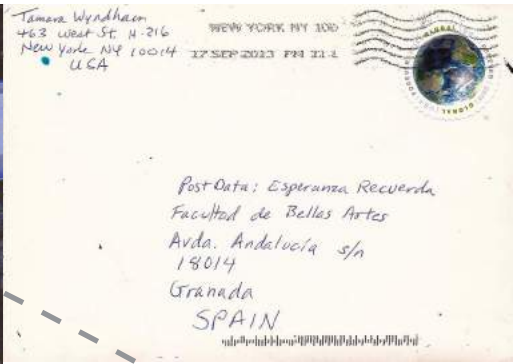 Tamara Wyndham
463 West St. H-216
New York NY 10014
USA
NEW YORK NY 100
17 SEP 2013 PM 11 L
GLOBAL
PostData: Esperanza Recuerda
Facultad de Bellas Artes
Avda. Andalucía s/n
18014
Granada
SPAIN